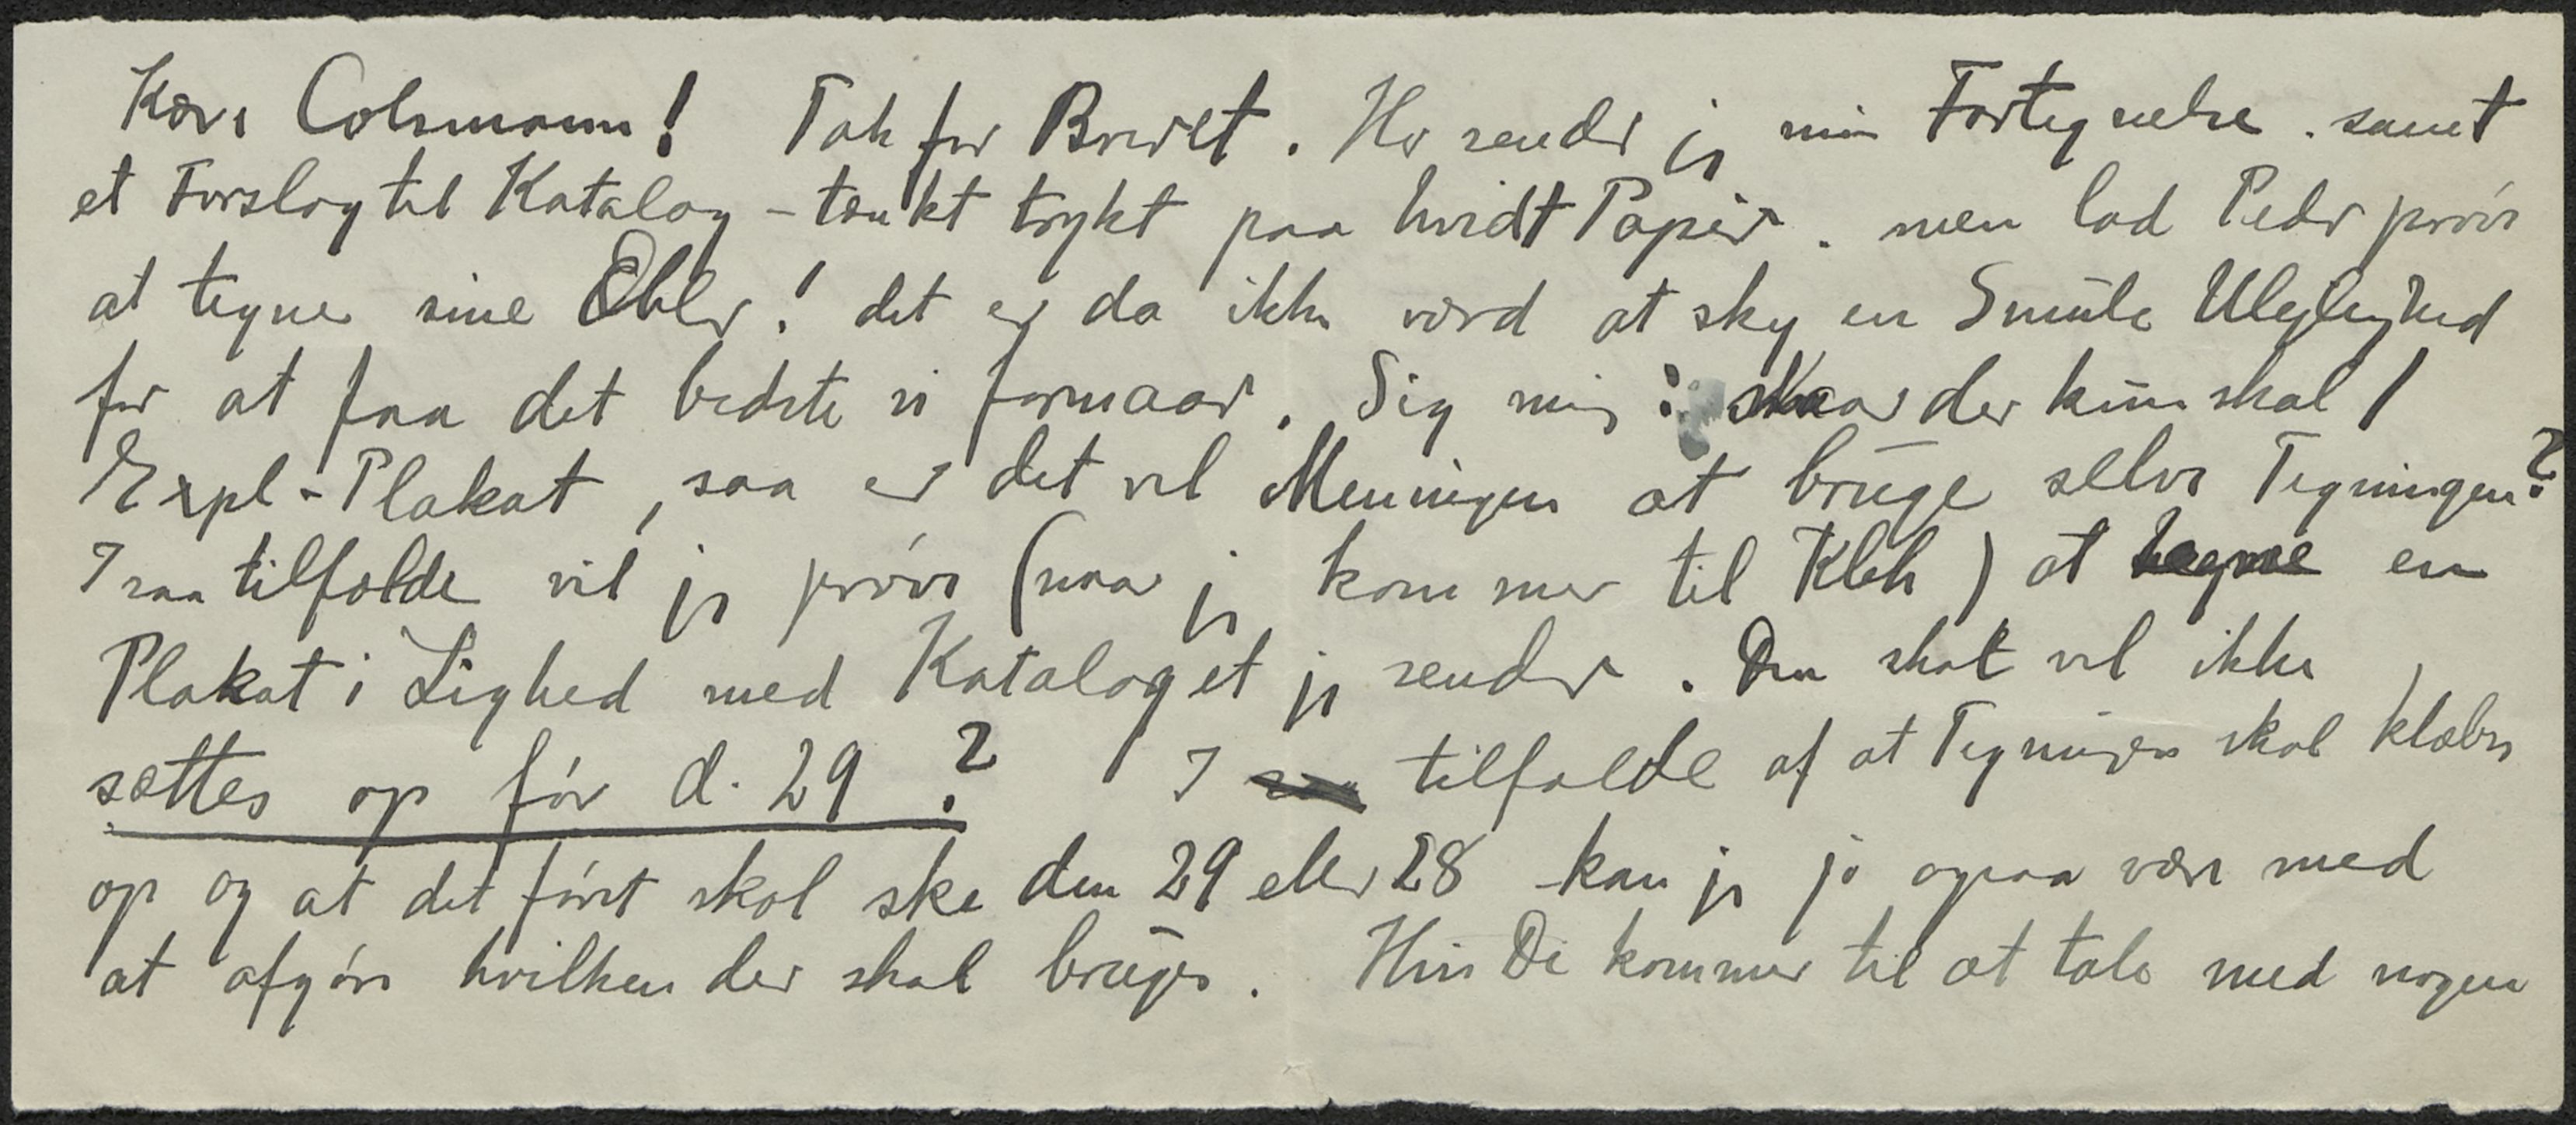 Kære Colsmann! Tak for Brevet. Her sender jeg min Fortegnelse. samt
et Forslag til Katalog - tænkt trykt paa hvidt Papir. men lad Peder prøve
at tegne sine Æbler! det er da ikke værd at sky en Smule Ulejlighed
for at faa det bedste vi formaar. Sig mig: naar der kun skal 1
Expl-Plakat, saa er det vel Meningen at bruge selve Tegningen?
I saa tilfælde vil jeg prøve (naar jeg kommer til Kbh) at tegne en
Plakat i Lighed med Kataloget jeg sender. Den skal vel ikke
sættes op før d. 29? I tilfælde af at Tegningen skal klæbes
op og at det først skal ske den 29 eller 28 - kan jeg jo ogsaa være med
at afgøre hvilken der skal bruges. Hvis De kommer til at tale med nogen